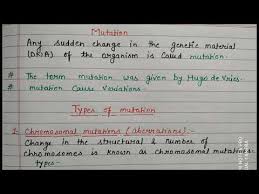 Mutation
Any sudden change in the genetic material
(DNA) of the organism is called mutation.
# The term mutation was given by Hugo de Vries.
# mutation Cause Variations.
Types of mutation
1. Chromosomal mutations (Aberrations):-
Change in the structural & number of
chromosomes is known as chromosomal mutations
types-